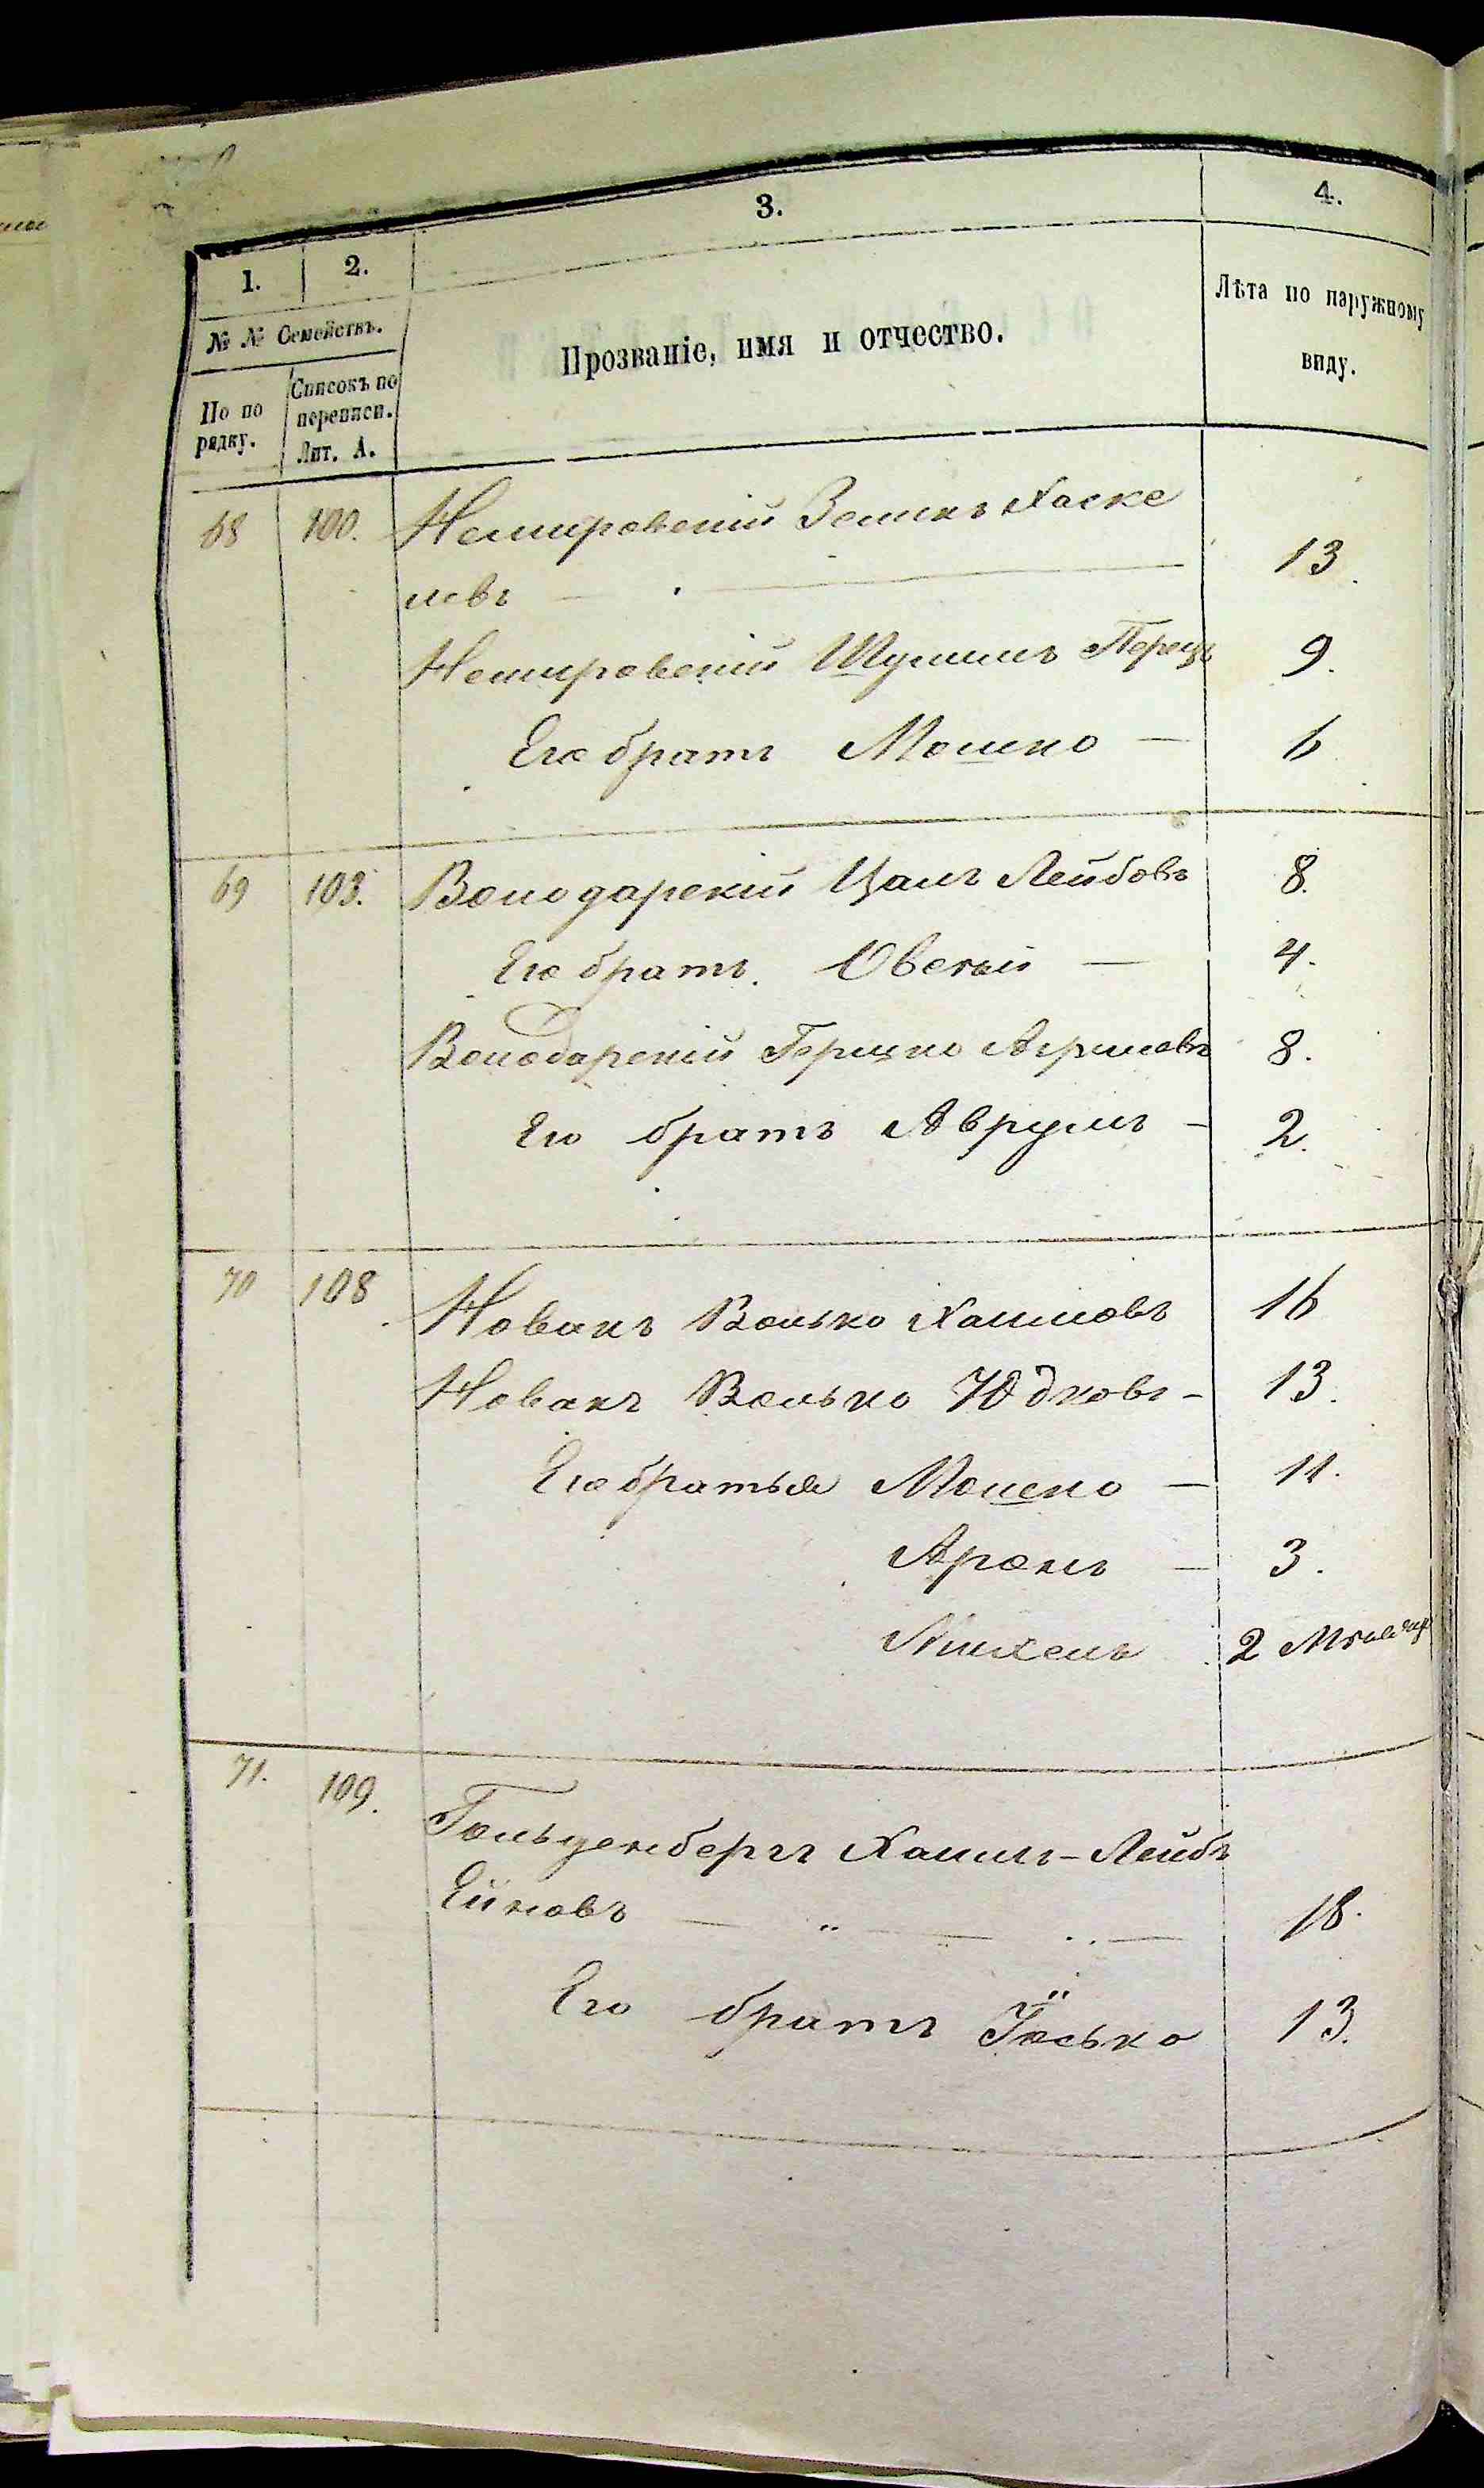 1. 2. 3. 4.
№ № Семействъ.
По по рядку.
Списокъ по переписи. Лит. А.
Прозваніе, имя и отчество.
Лѣта по наружному виду.
68 100. Немировскій Зельикъ Хаске
левъ — 13
Немировскій Шулимъ Перецъ 9.
Его брат Мошко — 6
69 103. Володарскій Цаль Лейбовъ 8.
Его братъ Овсѣй — 4.
Володарскій Герцко 8.
Его братъ Аврумъ — 2.
70 108 Новакъ Волько Хаимовъ 16
Новакъ Волько Юдковъ — 13.
Его братья Мошко — 11.
Аронъ — 3.
Михель 2 Мѣсяца
71. 109. Гольденбергъ Хаимъ-Лейбъ
Ейновъ — „ — 18.
Его братъ Іосько 13.